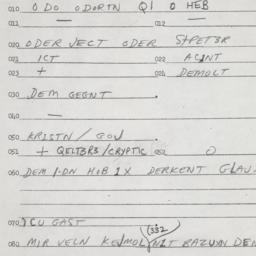 010 O DO ODORTN QI O HEB
011 — 012 —
020 ODER JECT ODER STPETBR
021 ICT 022 ACINT
023 + 024 DEMOLT
030 DEM GEGNT
040 —
050 KRISTN / GOU
051 + QELTBRS/CRYPTIC 052 O
060 DEM 1.DN HOB 1X DERKENT GLAU
070 CU GAST
(332)
080 MIR VELN KEJMOL NIT RAZUMN DEN